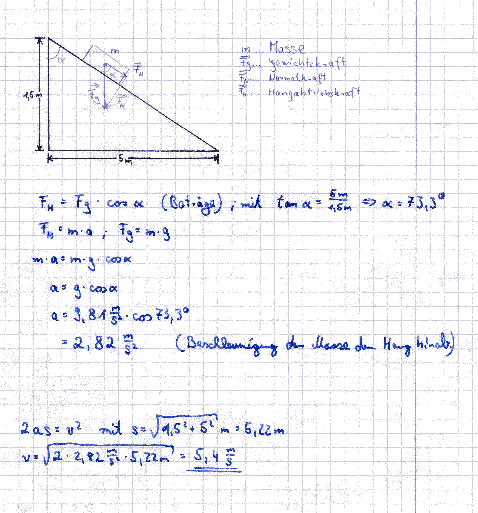 m
α
F_H
α
1,5m
5m
m... Masse
F_g... Gewichtskraft
F_N... Normalkraft
F_H... Hangabtriebskraft
F_H = F_g · cos α (Beträge) ; mit tan α = 5m/1,5m ⇒ α = 73,3°
F_H = m·a ; F_g = m·g
m·a = m·g·cos α
a = g·cos α
a = 9,81 m/s² · cos 73,3°
= 2,82 m/s² (Beschleunigung der Masse den Hang hinab)
2as = v² mit s = √(1,5² + 5²) m = 5,22m
v = √(2 · 2,82 m/s² · 5,22m) = 5,4 m/s